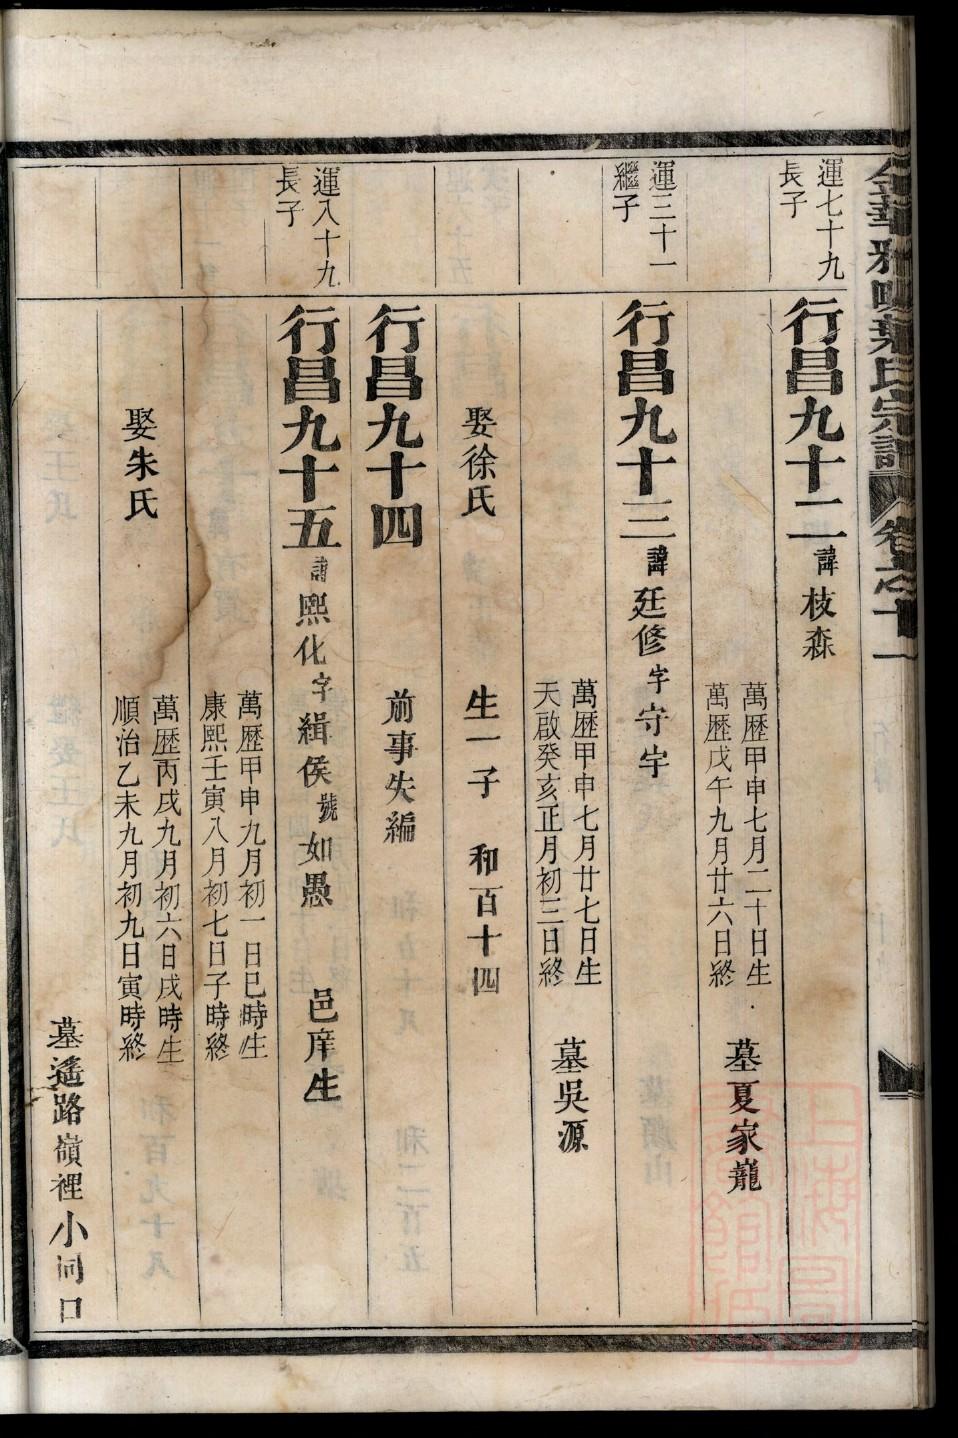 金華雅畈葉氏宗譜 卷之十一
運七十九
長子
行昌九十二 諱 枝森
萬歴甲申七月二十日生
萬歴戊午九月廿六日終
墓夏家巃
運三十一
繼子
行昌九十三 諱 廷修 字 守宇
萬歴甲申七月廿七日生
天啟癸亥正月初三日終
墓吳源
娶徐氏 生一子 和百十四
行昌九十四 前事失編
運八十九
長子
行昌九十五 諱 熙化 字 緝侯 號 如愚 邑庠生
萬歴甲申九月初一日巳時生
康熙壬寅八月初七日子時終
娶朱氏
萬歴丙戌九月初六日戌時生
順治乙未九月初九日寅時終
墓遙路嶺裡小同口